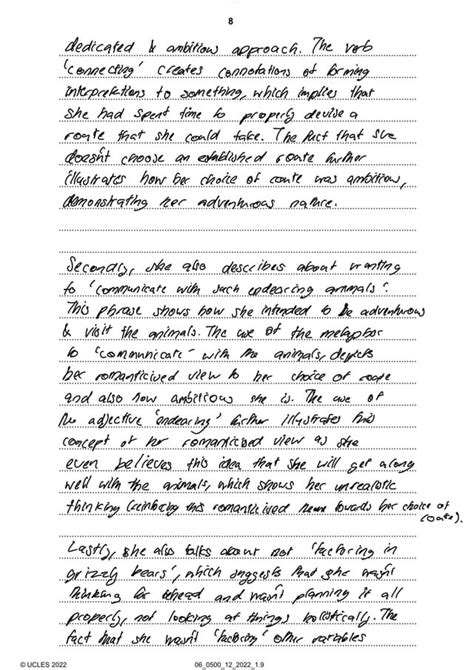 8
dedicated & ambitious approach. The verb
'connecting' creates connotations of forming
interpretations to something, which implies that
she had spent time to properly devise a
route that she could take. The fact that she
doesn't choose an established route further
illustrates how her choice of route was ambitious,
demonstrating her adventurous nature.
Secondly, she also describes about wanting
to 'communicate with such endearing animals'.
This phrase shows how she intended to be adventurous
& visit the animals. The use of the metaphor
to 'communicate' with the animals, depicts
her romanticised view to her choice of route
and also how ambitious she is. The use of
the adjective 'endearing' further illustrates this
concept of her romanticised view as she
even believes this idea that she will get along
well with the animals, which shows her unrealistic
thinking (reinforcing this romanticised towards her choice of
route).
Lastly, she also talks about not 'factoring in
grizzly bears', which suggests that she wasn't
thinking far ahead and wasn't planning it all
properly, not looking at things holistically. The
fact that she wasn't 'factoring' other variables
© UCLES 2022
06_0500_12_2022_1.9